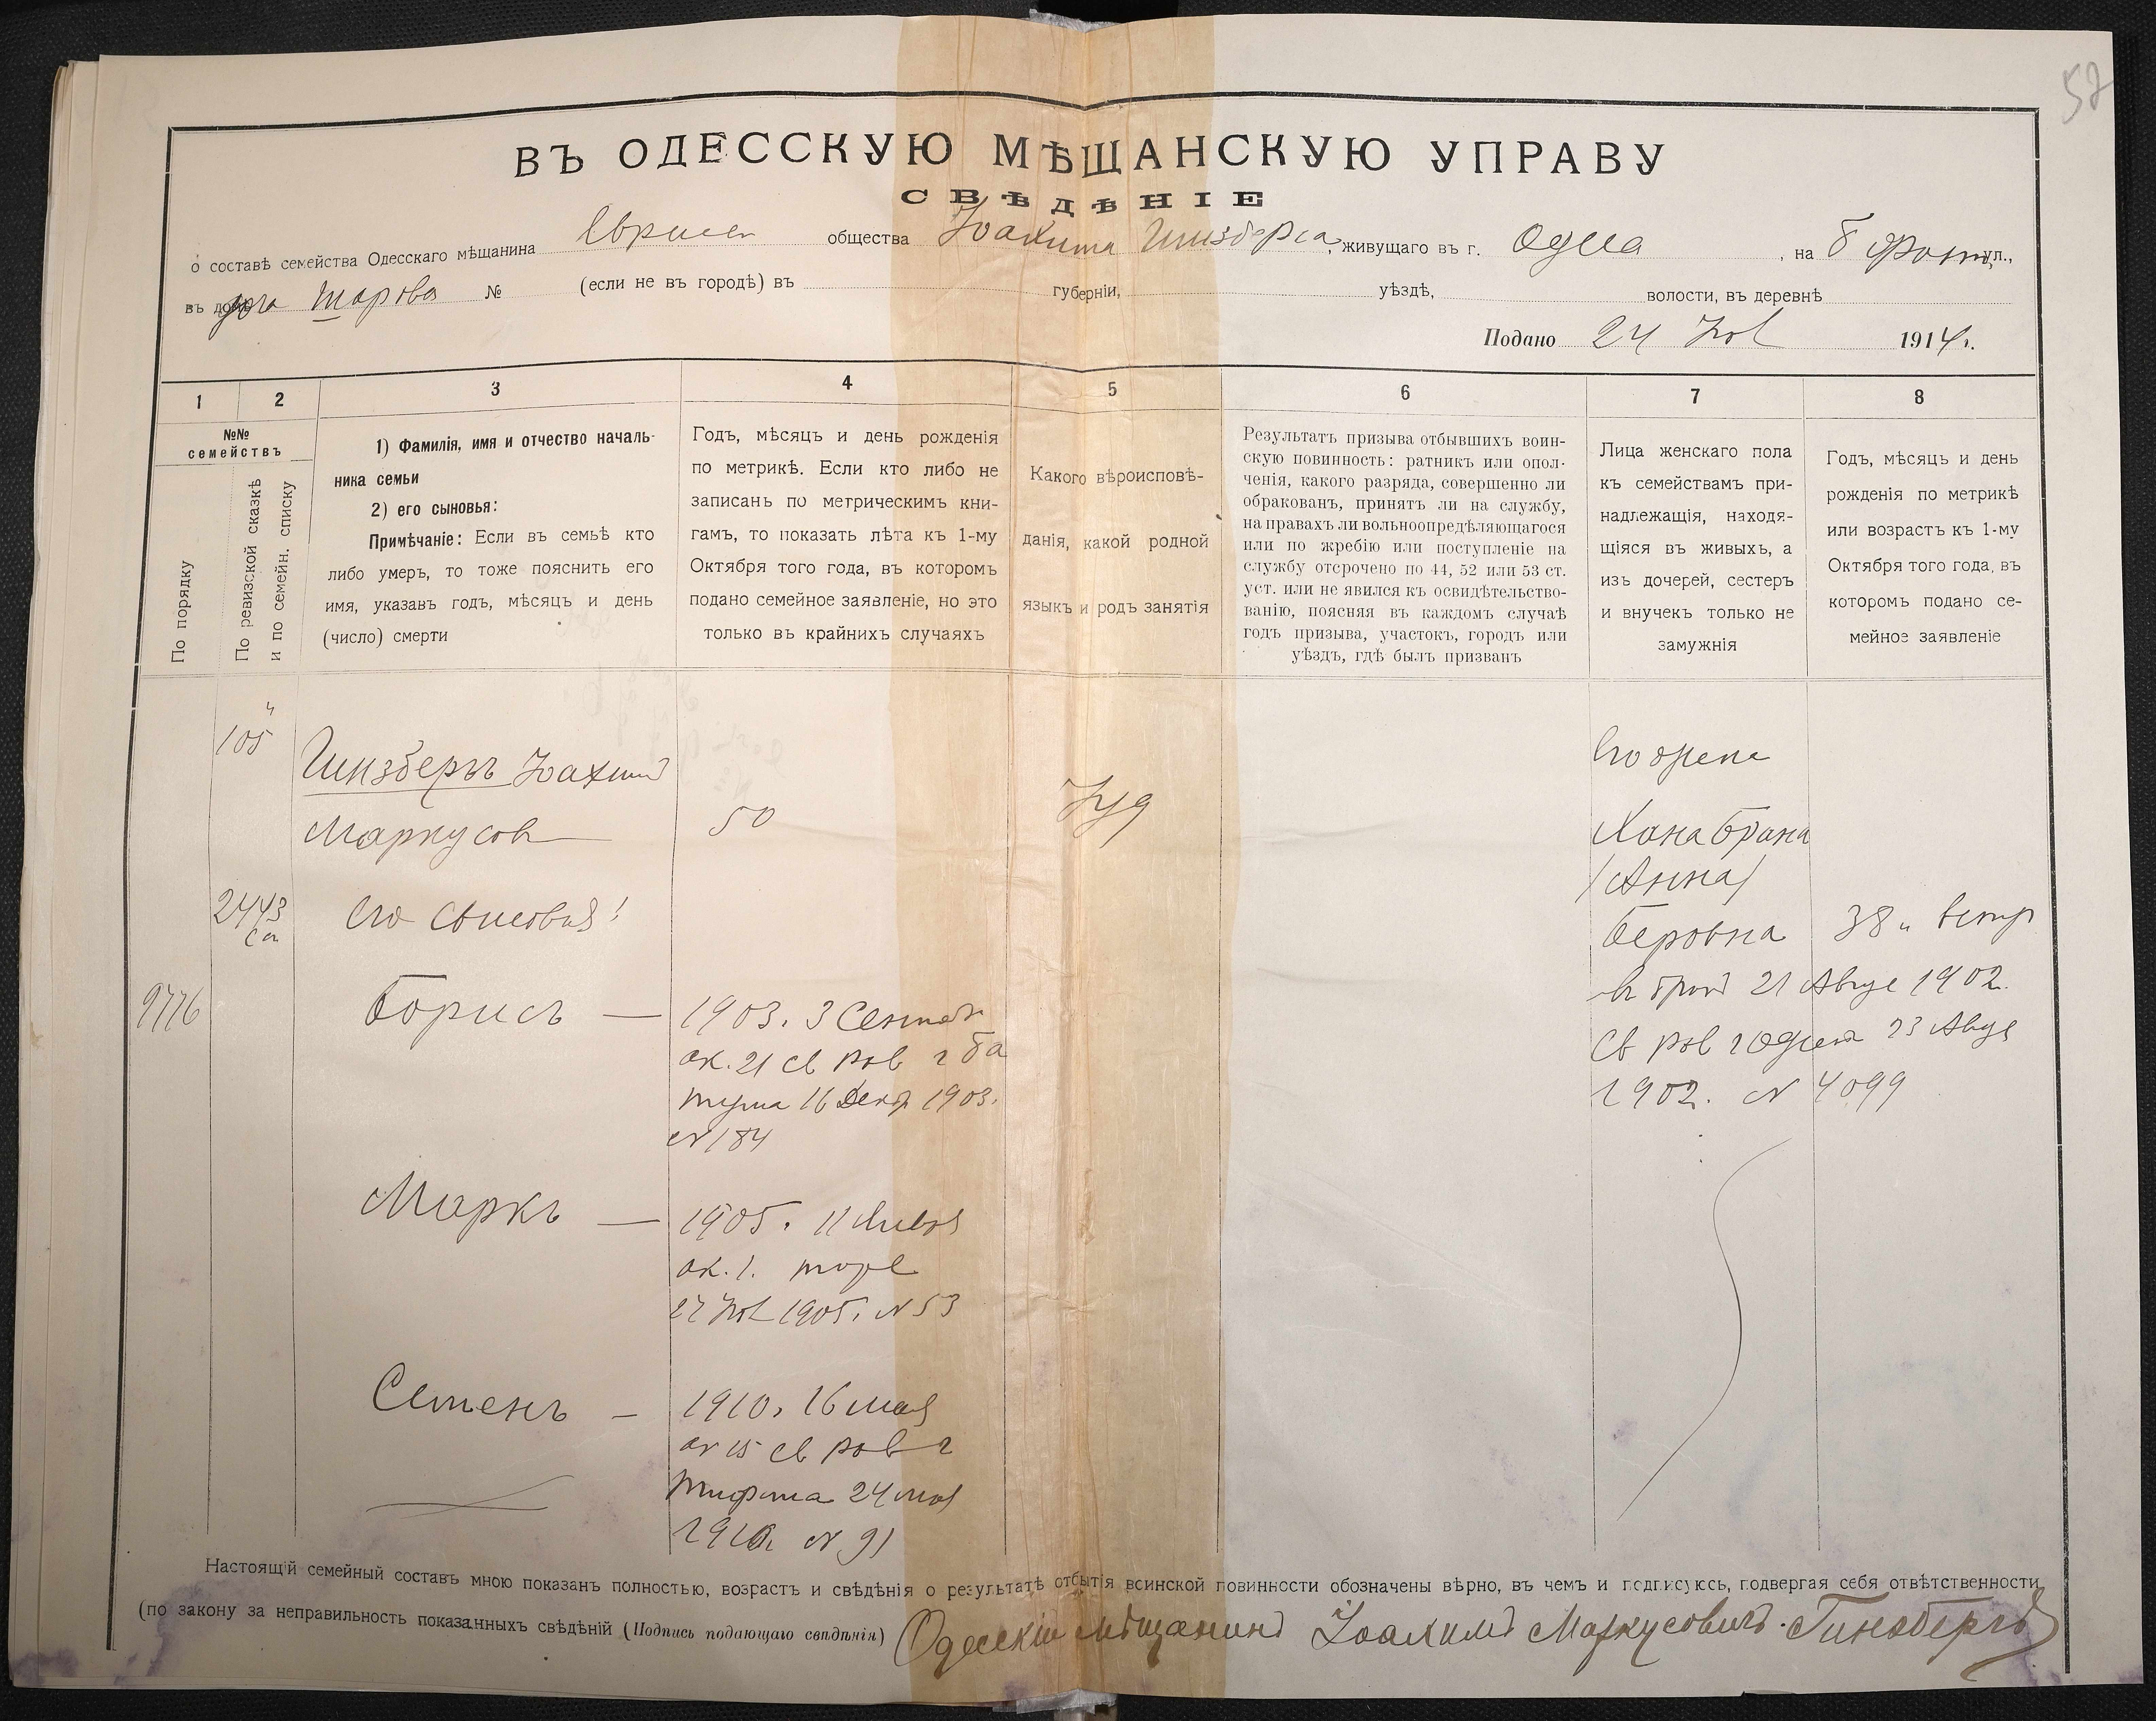 52
ВЪ ОДЕССКУЮ МѢЩАНСКУЮ УПРАВУ
СВѢДѢНІЕ
о составѣ семейства Одесскаго мѣщанина общества Іоахима Гинзберга, живущаго въ г. Одесса, на ул.,
въ № (если не въ городѣ) въ губерніи, уѣздѣ, волости, въ деревнѣ
Подано 24 1914 г.
1 2 3 4 5 6 7 8
№№ семействъ
По порядку
По ревизской сказкѣ
и по семейн. списку
1) Фамилія, имя и отчество началь-
ника семьи
2) его сыновья:
Примѣчаніе: Если въ семьѣ кто
либо умеръ, то тоже пояснить его
имя, указавъ годъ, мѣсяцъ и день
(число) смерти
Годъ, мѣсяцъ и день рожденія
по метрикѣ. Если кто либо не
записанъ по метрическимъ кни-
гамъ, то показать лѣта къ 1-му
Октября того года, въ которомъ
подано семейное заявленіе, но это
только въ крайнихъ случаяхъ
Какого вѣроисповѣ-
данія, какой родной
языкъ и родъ занятія
Результатъ призыва отбывшихъ воин-
скую повинность: ратникъ или опол-
ченія, какого разряда, совершенно ли
обракованъ, принятъ ли на службу,
на правахъ ли вольноопредѣляющагося
или по жребію или поступленіе на
службу отсрочено по 44, 52 или 53 ст.
уст. или не явился къ освидѣтельство-
ванію, поясняя въ каждомъ случаѣ
годъ призыва, участокъ, городъ или
уѣздъ, гдѣ былъ призванъ
Лица женскаго пола
къ семействамъ при-
надлежащія, находя-
щіяся въ живыхъ, а
изъ дочерей, сестеръ
и внучекъ только не
замужнія
Годъ, мѣсяцъ и день
рожденія по метрикѣ
или возрастъ къ 1-му
Октября того года, въ
которомъ подано се-
мейное заявленіе
105
Гинзбергъ Іоахимъ
Маркусов
50
Іуд
Его жена
Хана Брана
/Анна/
Беровна 38
2443
Его сыновья:
9776
Борисъ — 1903. 3 Сентяб
ак. 21 св рав
16 Декаб 1903.
№ 184
въ 21 Авгус 1902.
св рав 23 Авгус
1902. № 4099
Маркъ — 1905. 11 Января
ак. 1.
27 1905. № 53
Семенъ — 1910. 16 мая
ак 15 св рав
24 мая
1910 № 91
Настоящій семейный составъ мною показанъ полностью, возрастъ и свѣдѣнія о результатѣ отбытія воинской повинности обозначены вѣрно, въ чемъ и подписуюсь, подвергая себя отвѣтственности
(по закону за неправильность показанныхъ свѣдѣній (Подпись подающаго свѣдѣнія) Одесскій мѣщанинъ Іоахимъ Маркусовичъ Гинзбергъ